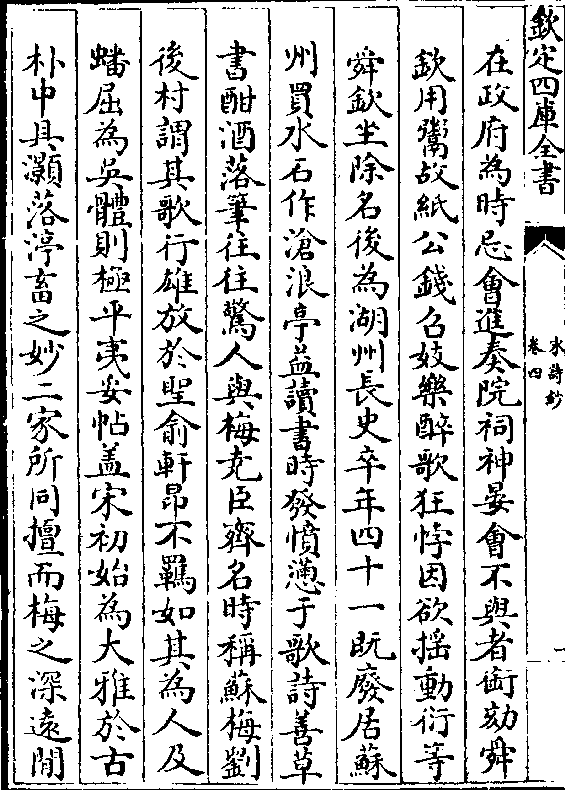 欽定四庫全書
宋詩鈔
卷四
在政府為時忌會進奏院祠神晏會不與者銜劾舜
欽用鬻故紙公錢召妓樂醉歌狂悖因欲揺動衍等
舜欽坐除名後為湖州長史卒年四十一既廢居蘇
州買水石作滄浪亭益讀書時發憤懣于歌詩善草
書酣酒落筆往往驚人與梅尭臣齊名時稱蘇梅劉
後村謂其歌行雄放於聖俞軒昂不羈如其為人及
蟠屈為吳體則極平夷妥帖盖宋初始為大雅於古
朴中具灝落渟畜之妙二家所同擅而梅之深逺閒